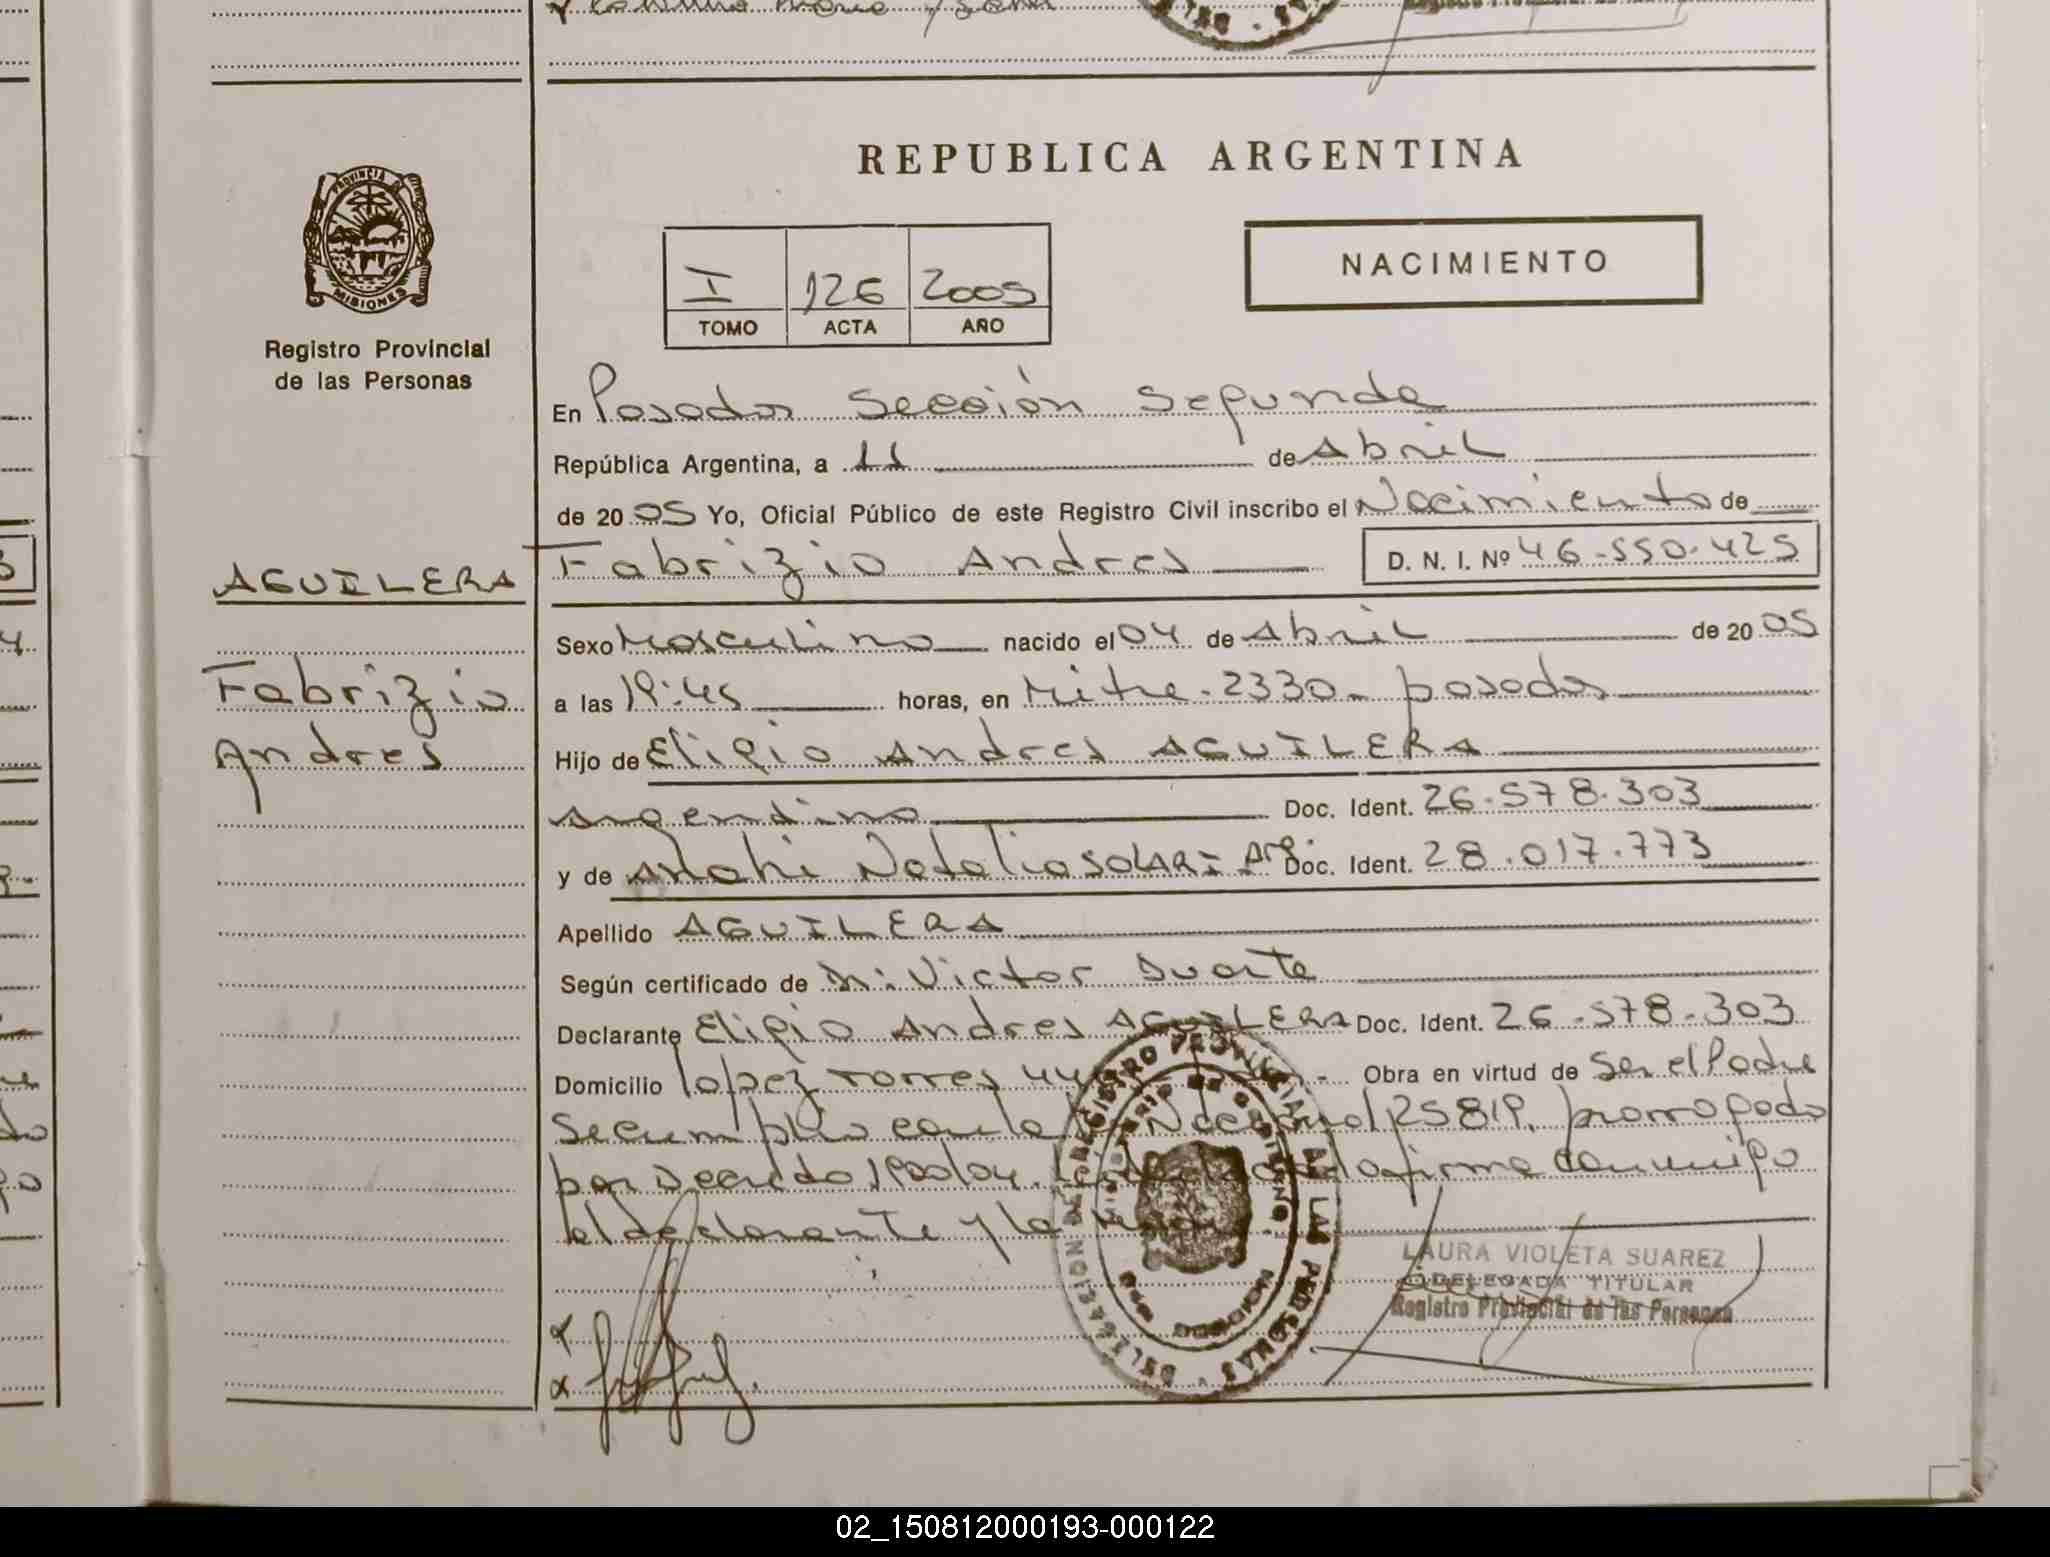 REPUBLICA ARGENTINA
PROVINCIA DE
MISIONES
Registro Provincial
de las Personas
I 126 2005
TOMO ACTA AÑO
NACIMIENTO
En Posadas Sección Segunda
República Argentina, a 11 de Abril
de 2005 Yo, Oficial Público de este Registro Civil inscribo el Nacimiento de
Fabrizio Andres D. N. I. Nº 46.550.425
AGUILERA
Fabrizio
Andres
Sexo Masculino nacido el 04 de Abril de 2005
a las 19:45 horas, en Mitre 2330 - posadas
Hijo de Eligio Andres AGUILERA
argentino Doc. Ident. 26.578.303
y de Anahi Natalia SOLARI - Arg. Doc. Ident. 28.017.773
Apellido AGUILERA
Según certificado de Dr. Victor Duarte
Declarante Eligio Andres AGUILERA Doc. Ident. 26.578.303
Domicilio Lopez Torres 44 Obra en virtud de ser el Padre
Se cumplio con la Nacional 25819, prorrogado
por Decreto 1900/04. la firma conmigo
el declarante y la
DELEGACION DE REGISTRO PROVINCIAL DE LAS PERSONAS
MINISTERIO DE GOBIERNO
LAURA VIOLETA SUAREZ
DELEGADA TITULAR
Registro Provincial de las Personas
02_150812000193-000122